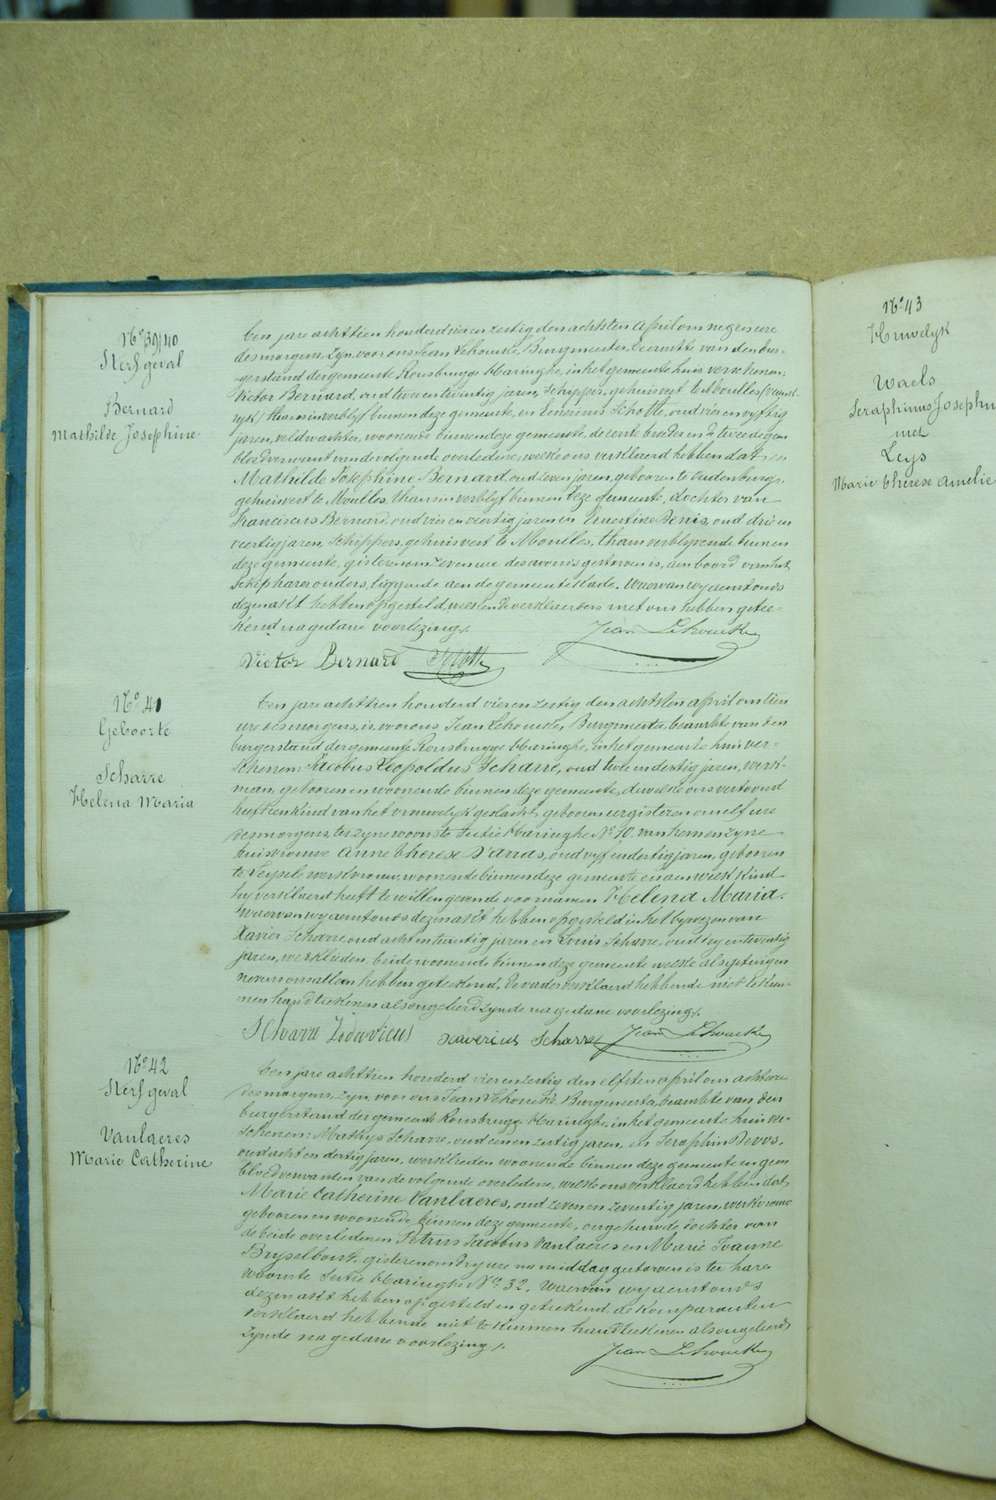 N° 39/40
Sterfgeval
Bernard
Mathilde Josephine
Ten jare achttien honderd vier en zestig den achtsten april om negen ure
des morgens, zyn voor ons Jean Lehoucke, Burgmeester, beambte van den bur-
-gerstand der gemeente Rousbrugge Haringhe, in het gemeente huis verschenen:
Victor Bernard, oud twee en twintig jaren, Schipper, gehuisvest te Moulles (vrank
ryk) thans in verblyf binnen deze gemeente, en Scholle, oud vier en vyftig
jaren, veldwachter, woonende binnen deze gemeente, de eerste broeder en de tweede geen
bloedverwant van de volgende overledene, welke ons verklaerd hebben dat
Mathilde Josephine Bernard, oud zeven jaren, geboren te Oudenburg,
gehuisvest te Moulles, thans in verblyf binnen deze gemeente, dochter van
Franciscus Bernard, oud vier en veertig jaren en Ernestine Denis, oud drie en
veertig jaren, Schippers, gehuisvest te Moulles, thans verblyvende binnen
deze gemeente, gisteren om zeven ure des avonds gestorven is, aen boord van het
Schip harer ouders, liggende aen de gemeente kade. Waervan wy aenstonds
dezen akt hebben opgesteld welken de verklaerders met ons hebben getee-
kend na gedane voorlezing.
Victor Bernard Jean Lehoucke
N° 41
Geboorte
Scharre
Helena Maria
Ten jare achttien honderd vier en zestig den achtsten april om tien
ure des morgens, is voor ons Jean Lehoucke, Burgmeester, beambte van den
burgerstand der gemeente Rousbrugge Haringhe, in het gemeente huis ver-
schenen: Jacobus Leopoldus Scharre, oud twee en dertig jaren, werk-
man, geboren en woonende binnen deze gemeente, dewelke ons vertoond
heeft een kind van het vrouwelyk geslacht, geboren eergisteren om elf ure
des morgens, ter zyne woonste Sectie Haringhe N° 10, van hem en zyne
huisvrouwe Anne Therese D'anas, oud vyf en dertig jaren, geboren
te Leysele, werkvrouw, woonende binnen deze gemeente en aen welk kind
hy verklaert heeft te willen geven de voornamen Helena Maria.
Waervan wy aenstonds dezen akt hebben opgesteld in het bywezen van
Xavier Scharre, oud acht en twintig jaren en Louis Scharre, oud zes en twintig
jaren, werklieden, beide woonende binnen deze gemeente welke als getuigen
nevens ons allen hebben geteekend, de vader verklaerd hebbende niet te kun-
nen handteekenen als ongeleerd zynde na gedane voorlezing.
Scharre Lodovicus Xaverius Scharre Jean Lehoucke
N° 42
Sterfgeval
Vanlaeres
Marie Catherine
Ten jare achttien honderd vier en zestig den elfsten april om acht ure
des morgens, zyn voor ons Jean Lehoucke, Burgmeester, beambte van den
burgerstand der gemeente Rousbrugge Haringhe, in het gemeente huis ver-
schenen: Mathys Scharre, oud een en zestig jaren, en Seraphin Devos,
oud acht en dertig jaren, werklieden woonende binnen deze gemeente en geen
bloedverwanten van de volgende overledene, welke ons verklaerd hebben dat
Marie Catherine Vanlaeres, oud zeven en zeventig jaren, werkvrouw
geboren en woonende binnen deze gemeente, ongehuwde dochter van
de beide overledenen Petrus Jacobus Vanlaeres en Marie Joanne
Bryselbout, gisteren om dry ure na middag gestorven is ter hare
woonste Sectie Haringhe N° 32. Waervan wy aenstonds
dezen akt hebben opgesteld en geteekend de Komparanten
verklaerd hebbende niet te kunnen handteekenen als ongeleerd
zynde na gedane voorlezing.
Jean Lehoucke
N° 43
Huwelyk
Waels
Seraphinus Josephu
met
Leys
Marie Therese Amelie